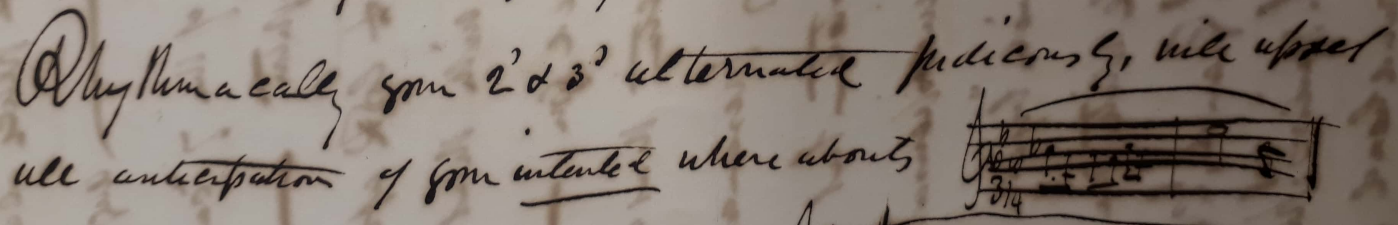 Rhythmacally your 2' & 3' alternated judiciously, will upset
all anticipation of your intended where abouts
3/4